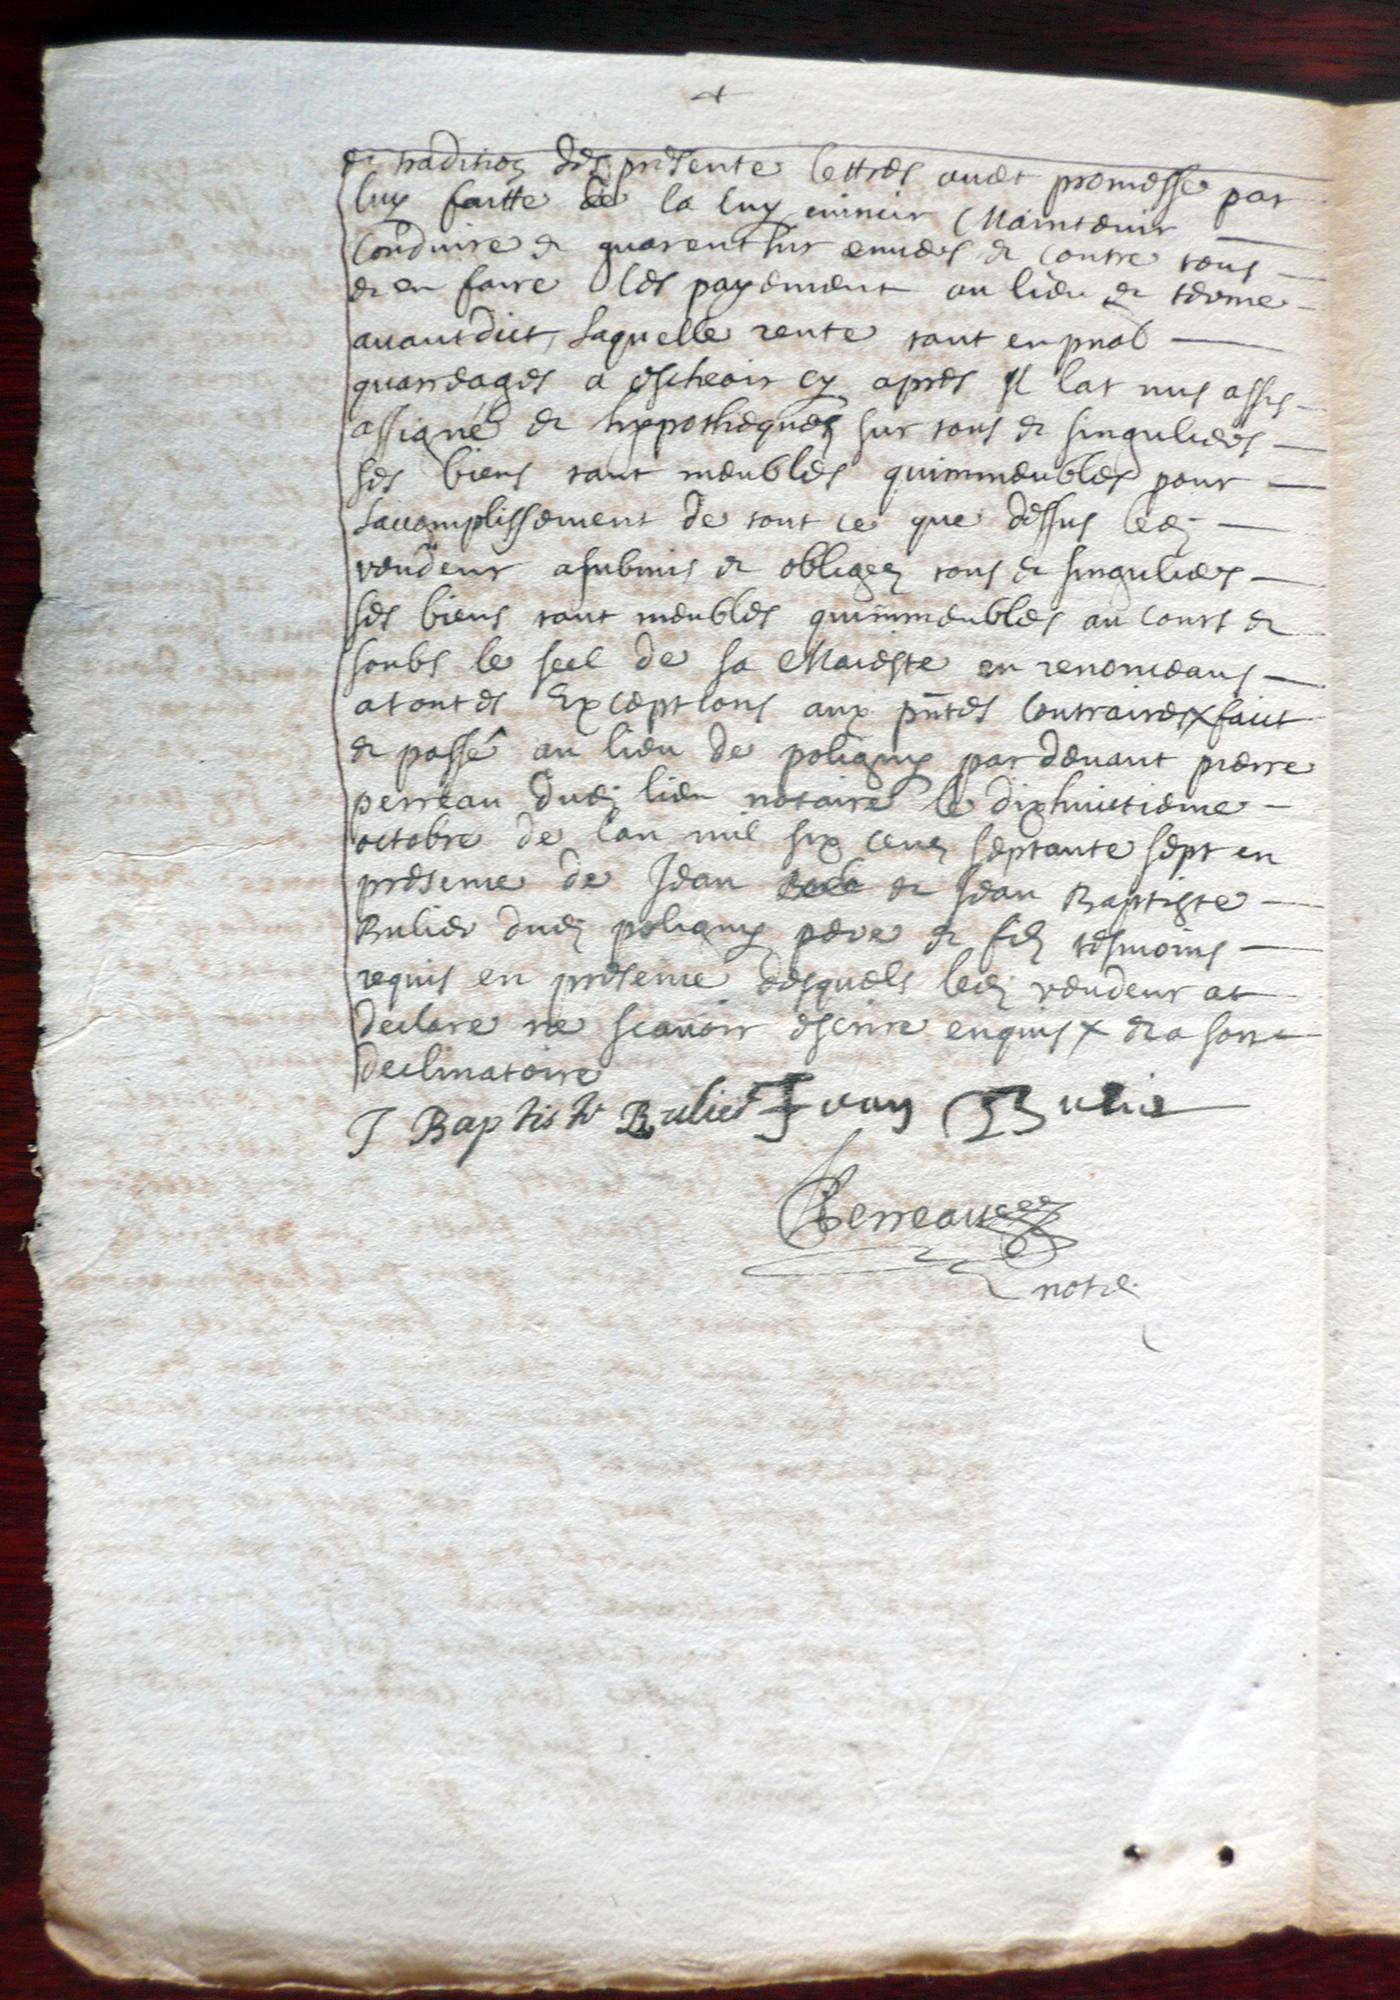 et tradition des presente lettres avec promesse par
luy faitte de la luy Maintenir
Conduire et guarentir envers et contre tous
et en faire les payement au lieu et terme
avantdict, Laquelle rente tant en pnal
quarreages a escheoir cy apres Il lat mis assis
assigné et hyppotheques sur tous et singuliers
ses biens tant meubles quimmeubles pour
Laccomplissement de tout ce que dessus led.
vendeur asubmis et obligez tous et singuliers
ses biens tant meubles quimmeubles au Cours et
soubs le seel de sa Maieste en renonceans
atoutes Exceptions aux pntes Contraires x faict
et passé au lieu de poligny par devant pierre
perreau dud. lieu notaire le dixhuictieme
octobre de lan mil six cens septante sept en
presence de Jean et Jean Baptiste
Bulier dud. poligny pere et fils tesmoins
requis en presence desquels led. vendeur at
declare ne scavoir escrire enquis x
declinatoire
J Baptiste Bulier Jean Bulier
Perreau
notre